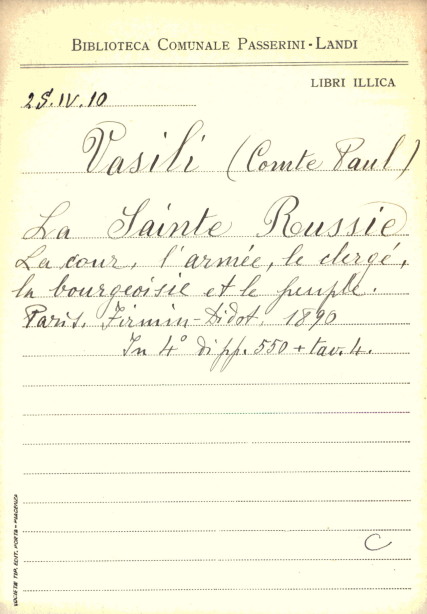 BIBLIOTECA COMUNALE PASSERINI-LANDI
LIBRI ILLICA
2S.IV.10
Vasili (Comte Paul)
La Sainte Russie
La cour, l'armée, le clergé,
la bourgeoisie et le peuple.
Paris. Firmin-Didot, 1890
In 4° di pp. 550 + tav. 4.
C
SOCIETÀ TIP. EDIT. PORTA - PIACENZA